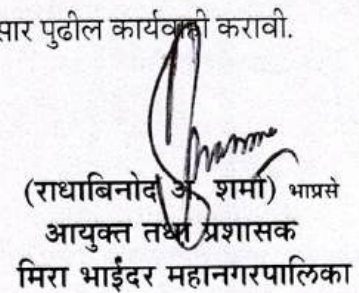 सार पुढील कार्यवाही करावी.
(राधाबिनोद अ. शर्मा) भाप्रसे
आयुक्त तथा प्रशासक
मिरा भाईंदर महानगरपालिका